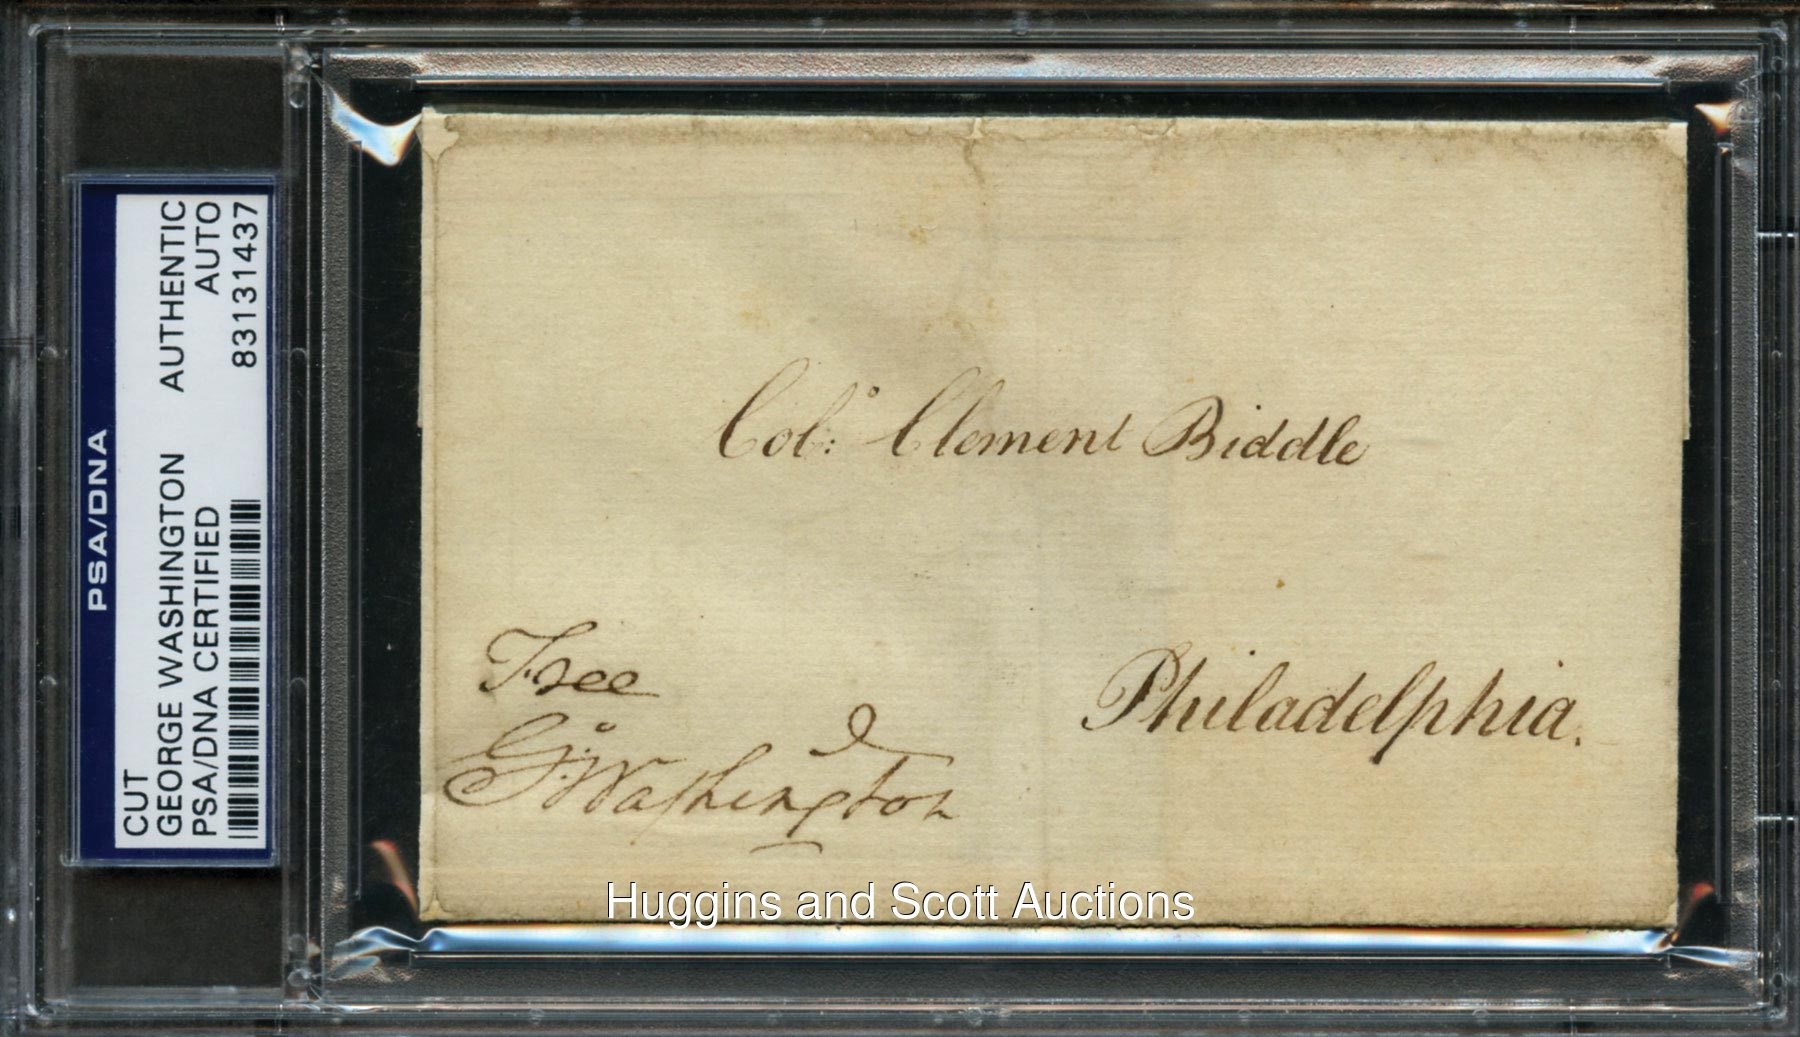 PSA/DNA
CUT
GEORGE WASHINGTON AUTHENTIC
PSA/DNA CERTIFIED AUTO
83131437
Col.º Clement Biddle
Free
Philadelphia.
Gº: Washington
Huggins and Scott Auctions